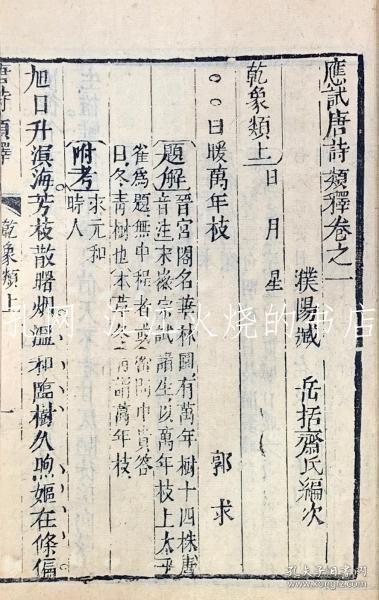 應試唐詩類釋卷之一
濮陽臧 岳括齋氏編次
乾象類上 日 月 星
○○日暖萬年枝 郭求
題解 晉宮閣名華林園有萬年樹十四株唐
音生宋徽宗試諸生以萬年枝上太平
雀爲題無中程者或密問中貴答
曰冬青樹也本草冬青謂萬年枝
附考 求元和
時人
旭日升溟海芳枝散曙烟溫和臨樹久煦嫗在條偏
唐詩類釋 乾象類上 一
孔网
火烧的书店